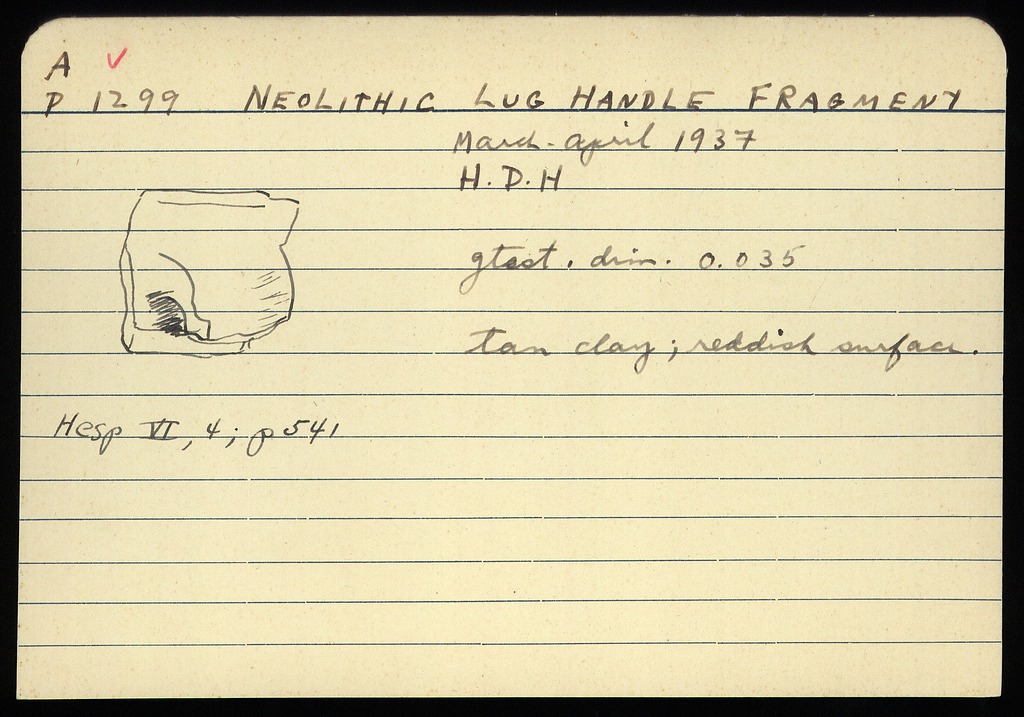 A ✓
P 1299 NEOLITHIC LUG HANDLE FRAGMENT
March-April 1937
H.D.H
gtest. dim. 0.035
tan clay; reddish surface.
Hesp VI, 4; p 541